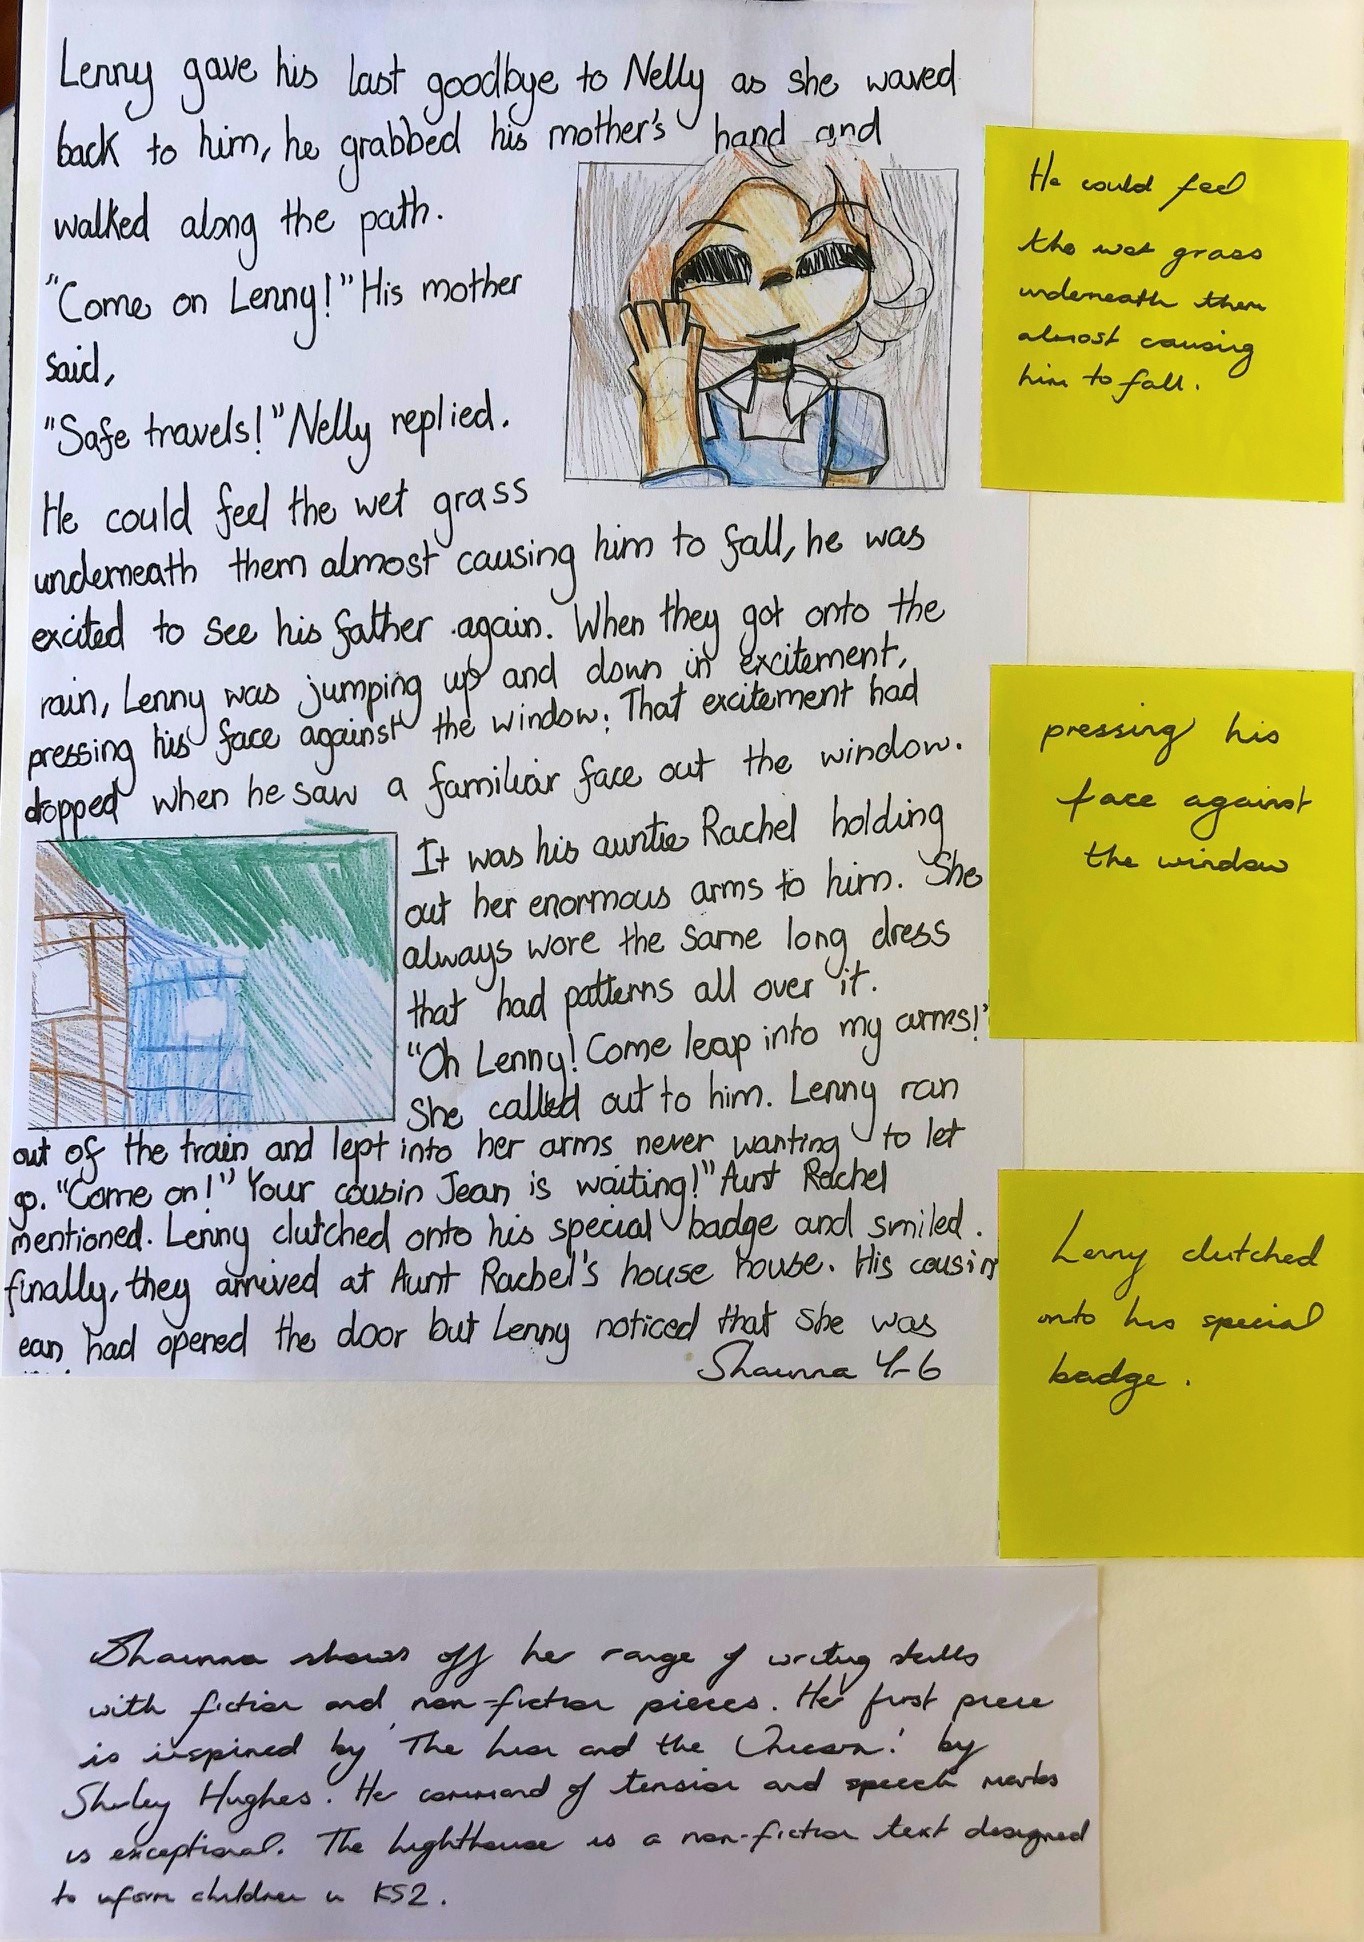 Lenny gave his last goodbye to Nelly as she waved
back to him, he grabbed his mother's hand and
walked along the path.
"Come on Lenny!" His mother
said,
"Safe travels!" Nelly replied.
He could feel the wet grass
underneath them almost causing him to fall, he was
excited to see his father again. When they got onto the
rain, Lenny was jumping up and down in excitement,
pressing his face against the window. That excitement had
dropped when he saw a familiar face out the window.
It was his auntie Rachel holding
out her enormous arms to him. She
always wore the same long dress
that had patterns all over it.
"Oh Lenny! Come leap into my arms!"
She called out to him. Lenny ran
out of the train and lept into her arms never wanting to let
go. "Come on!" Your cousin Jean is waiting!" Aunt Rachel
mentioned. Lenny clutched onto his special badge and smiled.
finally, they arrived at Aunt Rachel's house house. His cousin
ean had opened the door but Lenny noticed that she was
Shaunna 4-6
He could feel
the wet grass
underneath them
almost causing
him to fall.
pressing his
face against
the window
Lenny clutched
onto his special
badge.
Shaunna shows off her range of writing skills
with fiction and non-fiction pieces. Her first piece
is inspired by 'The lion and the Unicorn' by
Shirley Hughes. Her command of tension and speech marks
is exceptional. The lighthouse is a non-fiction text designed
to inform children in KS2.